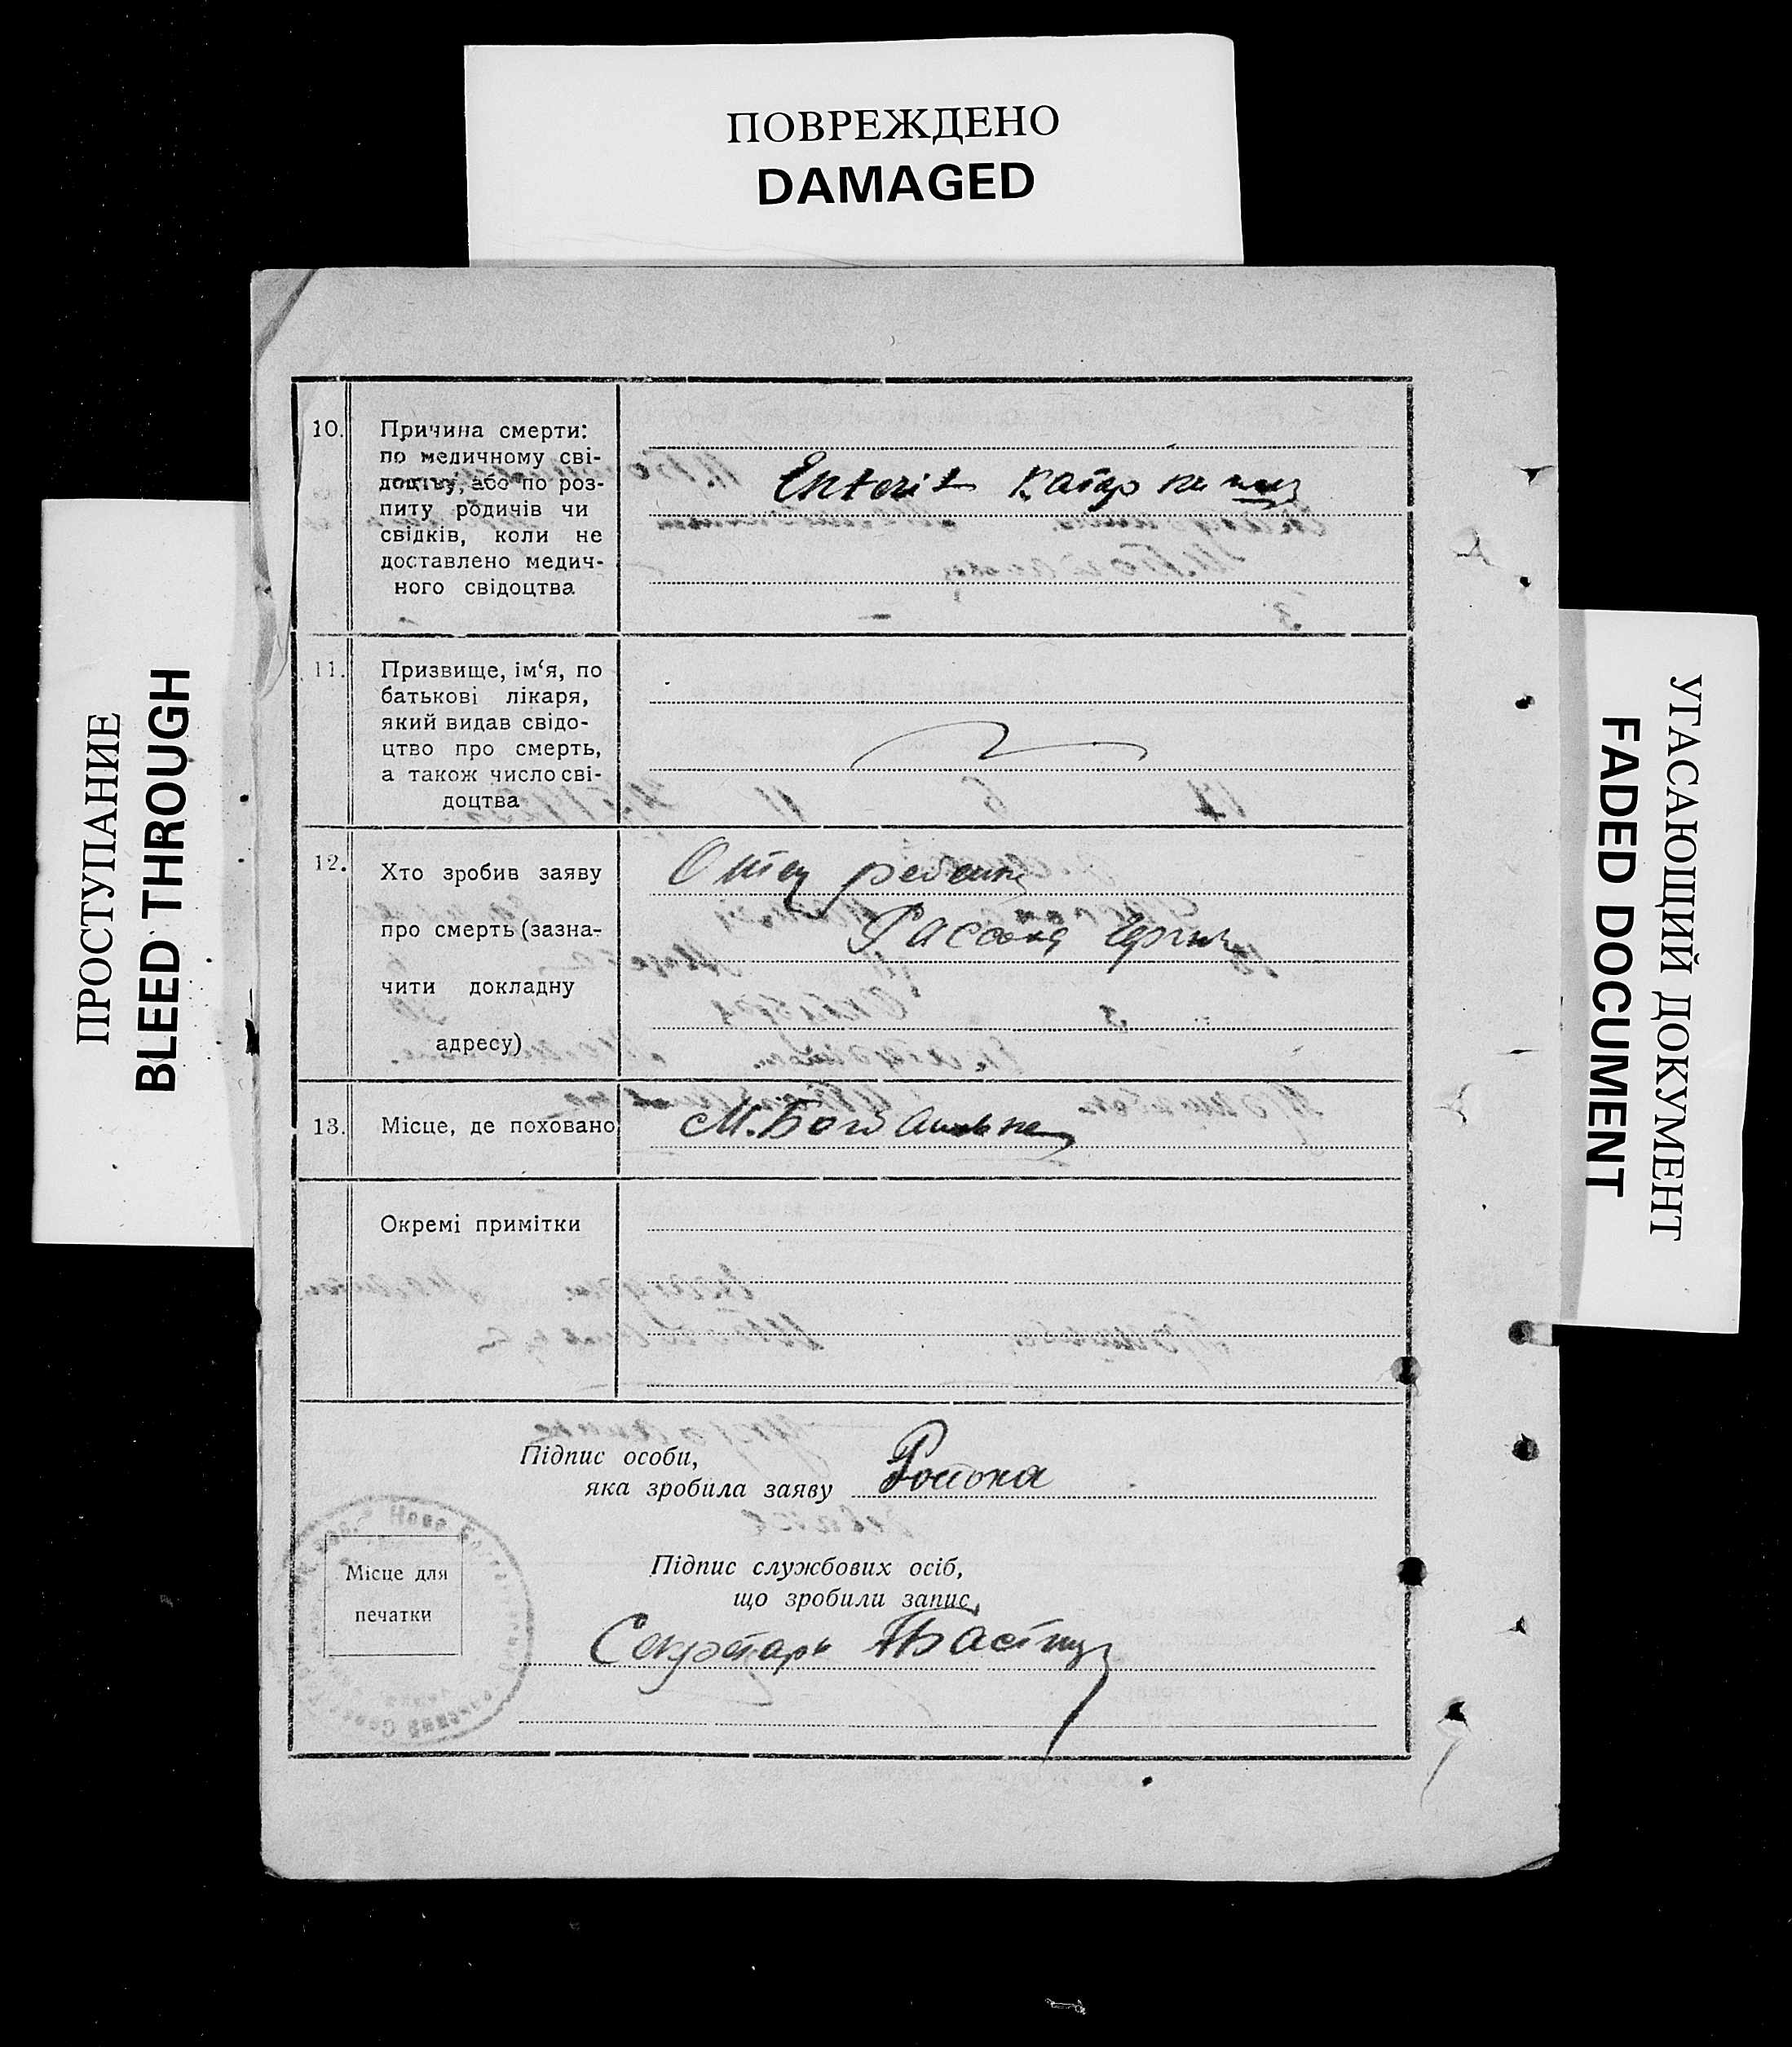 ПОВРЕЖДЕНО
DAMAGED
ПРОСТУПАНИЕ
BLEED THROUGH
УГАСАЮЩИЙ ДОКУМЕНТ
FADED DOCUMENT
10. Причина смерти:
по медичному сві-
доцтву, або по роз-
питу родичів чи
свідків, коли не
доставлено медич-
ного свідоцтва
Enterit катар
11. Призвище, ім‘я, по
батькові лікаря,
який видав свідо-
цтво про смерть,
а також число сві-
доцтва
12. Хто зробив заяву
про смерть (зазна-
чити докладну
адресу)
Отец ребенка
Рассоха
13. Місце, де поховано
М. Богдановка
Окремі примітки
Підпис особи,
яка зробила заяву
Місце для
печатки
Підпис службових осіб,
що зробили запис
Секретарь